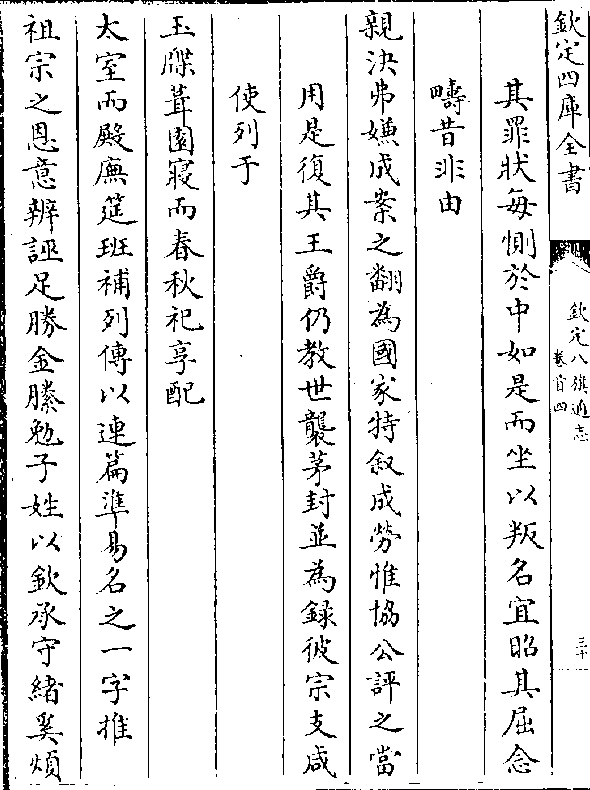 欽定四庫全書
欽定八旗通志
卷首四
三十
其罪狀每惻於中如是而坐以叛名宜昭其屈念
疇昔非由
親決弗嫌成案之翻為國家特叙成勞惟協公評之當
用是復其王爵仍教世襲茅封並為録彼宗支咸
使列于
玉牒葺園寢而春秋祀享配
太室而殿廡筵班補列傳以連篇準易名之一字推
祖宗之恩意辨誣足勝金縢勉子姓以欽承守緒奚煩